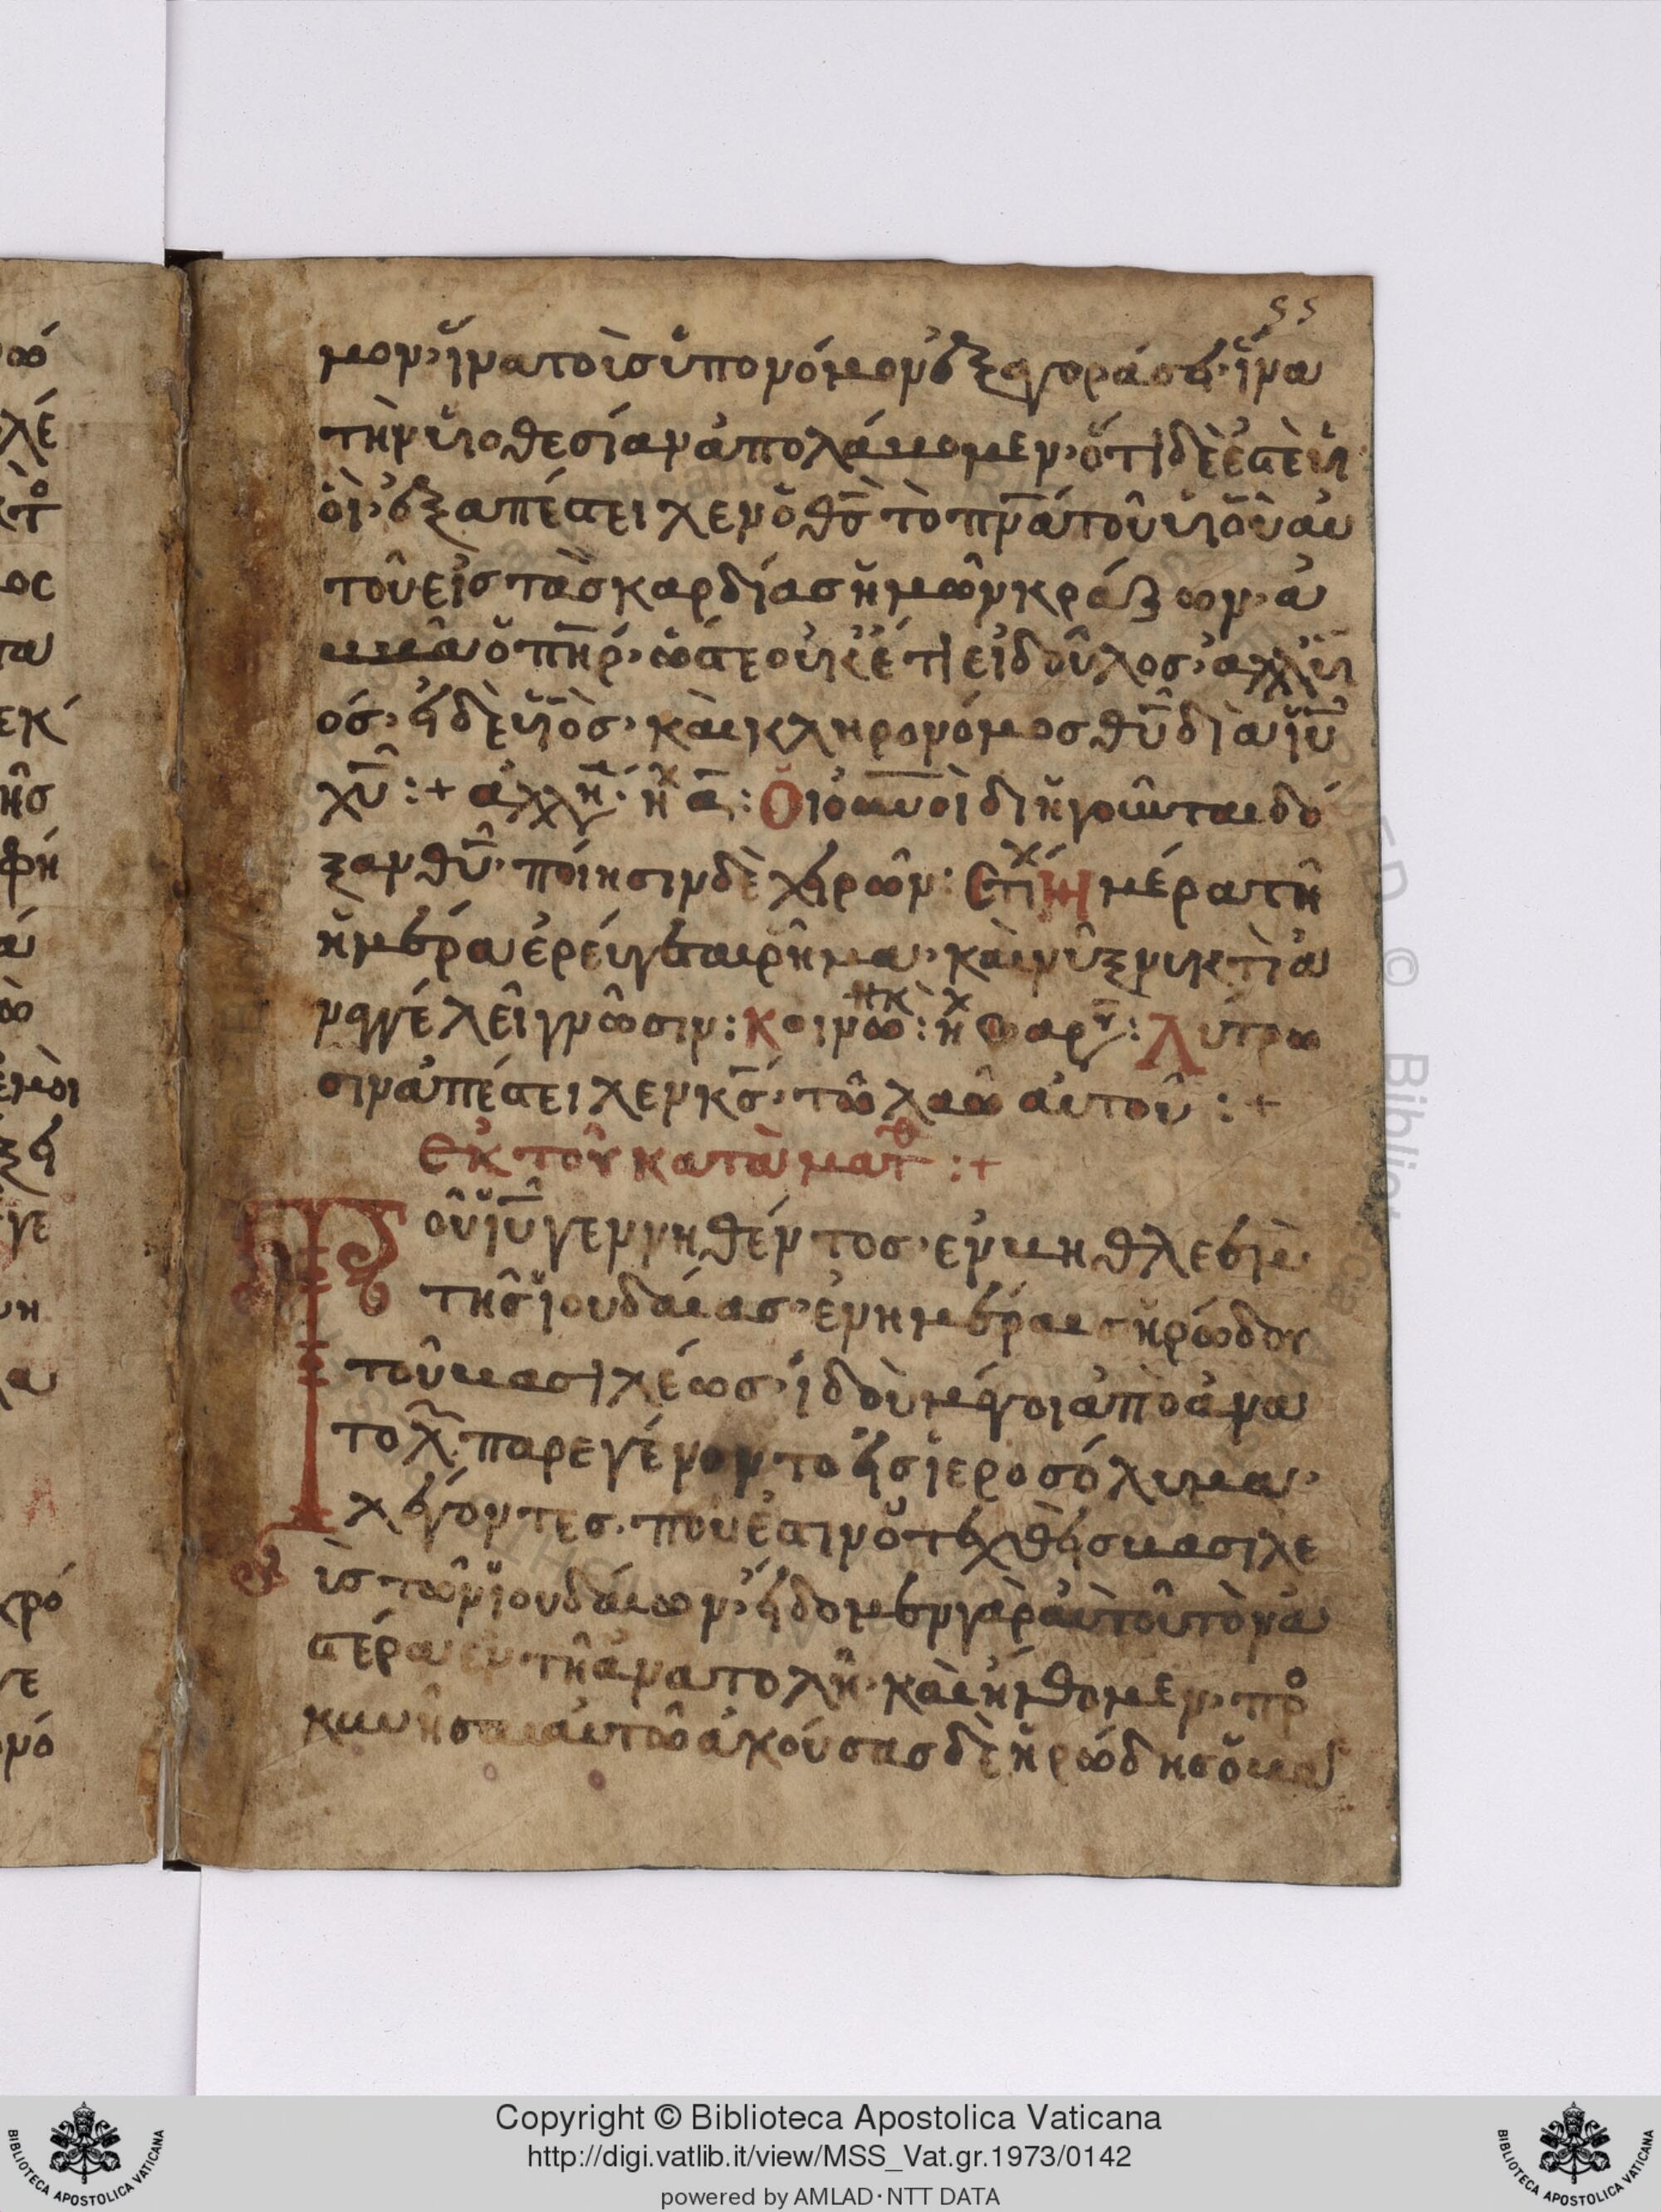 55
μον· ἵνα τοὶς ὑπο νόμον ἐξαγοράσει· ἵνα
τὴν ὑιοθεσίαν ἀπολάβομεν· ὅτι δὲ ἐστὲ ὑι
ὁὶ· ἐξαπέστειχεν ὁ θς̅ τὸ πνᾶ τοῦ ὑιοῦ ἀυ
τοῦ εἰς τὰς καρδίας ἡμῶν κράζων· ἀ
ββᾶ ὁ πη̅ρ· ὥστε οὐκ ἔτι εἶ δοῦλος· ἀλλ ὑι
ός· εἰ δὲ ὑιὸς· κὰι κληρονόμος θυ̅ διὰ ἰυ̅
χυ̅ :+ ἀλλη· ἦχ α̅ : Οἱ ὀυνοὶ διηγοῦνται δό
ξαν θυ̅· πόιησιν δὲ χειρῶν : Στι Ἡμέρα τῆ
ἡμέρα ἐρεύγεται ρῆμα· κὰι νὺξ νυκτὶ ἀ
ναγγέλεῖ γνῶσιν : κοινω : ἦχ βαρ : Λύτρω
σιν ἀπέστειλεν κς̅· τῶ λαῶ ἀυτοῦ :+
Εκ τοῦ κατὰ ματθ :+
Τοῦ ἰυ̅ γεννηθέντος· εν βηθλεεὶμ
τῆς ἰουδάιας· ἐν ημέραις ἡρώδου
τοῦ βασιλέως· ἰδοὺ μάγοι ἀπὸ ἀνα
τολ παρεγένοντο εἰς ἱεροσόλυμα·
λέγοντες· ποῦ ἐστιν ὁ τεχθεὶς βασιλε
ὶς τῶν ἰουδάιων· εἴδομεν γὰρ ἀυτοῦ τὸν ἀ
στέρα ἐν τῆ ἀνατολῆ· κὰι ἤλθομεν· προ
κυνῆσαι ἀυτῶ ἀκούσας δὲ ἡρώδης ὁ βα
Copyright © Biblioteca Apostolica Vaticana
http://digi.vatlib.it/view/MSS_Vat.gr.1973/0142
powered by AMLAD·NTT DATA
BIBLIOTECA APOSTOLICA VATICANA
BIBLIOTECA APOSTOLICA VATICANA